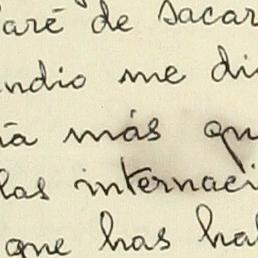 aré de sacar
ndio me di
ía más qu
las internaci
que has ha